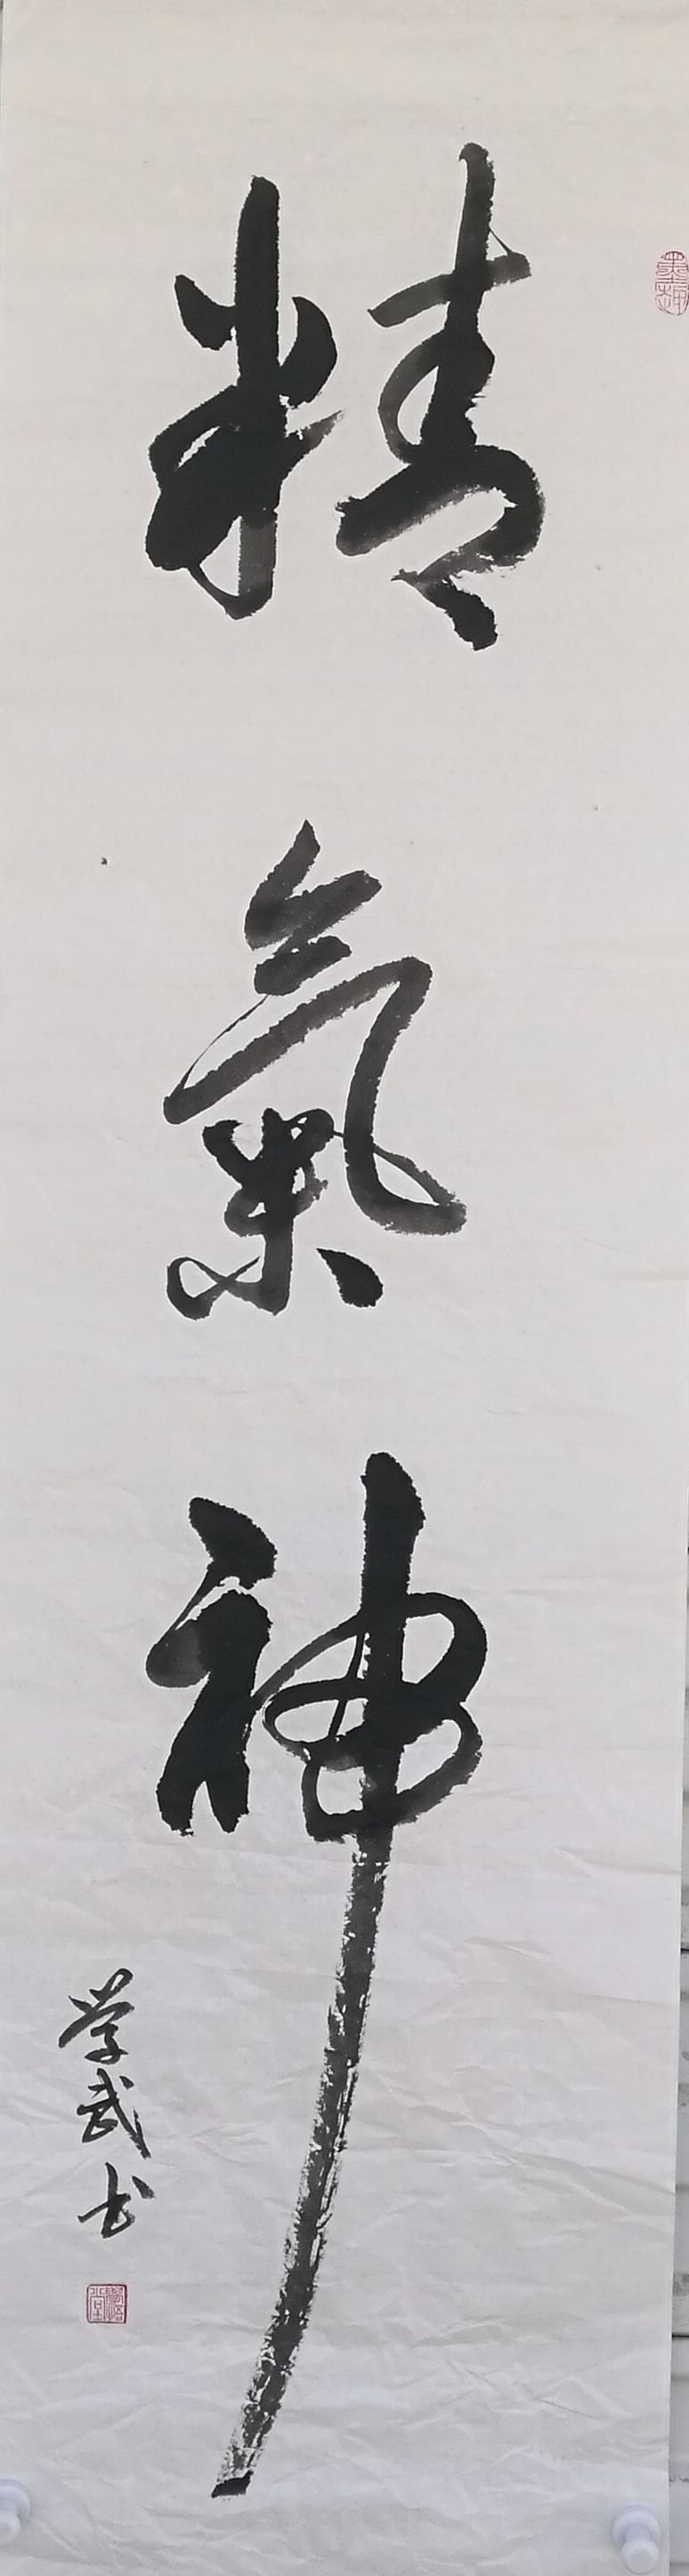 精氣神
学武书